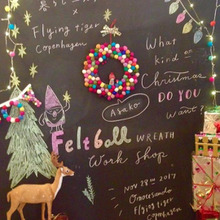 Flying tiger
Copenhagen
What
kind of
Christmas
DO YOU
WANT?
Asako
Felt ball WREATH
Work Shop
Nov 28th 2017
Omotesando
Flying tiger
Copenhagen